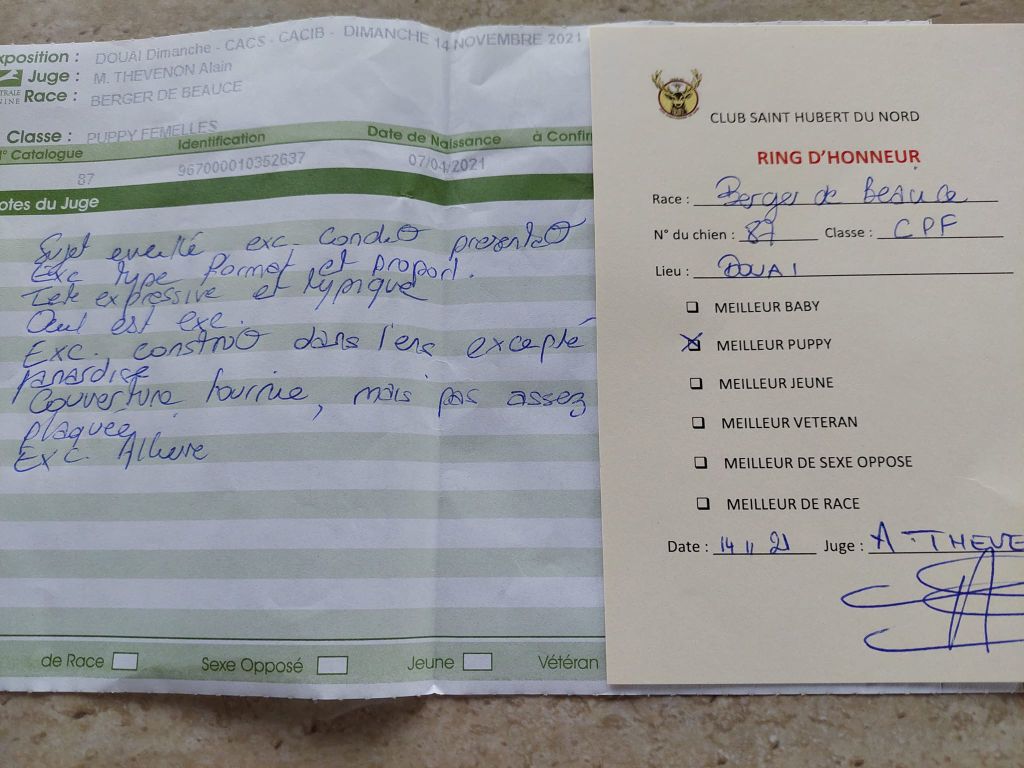 xposition : DOUAI Dimanche - CACS - CACIB - DIMANCHE 14 NOVEMBRE 2021
Juge : M. THEVENON Alain
TRALE
NINE
Race : BERGER DE BEAUCE
Classe : PUPPY FEMELLES
N° Catalogue Identification Date de Naissance à Confir
87 967000010352637 07/04/2021
otes du Juge
Sujet eveillé exc. Condit° presentat°
Exc type format et proport.
Tete expressive et typique
Oeil est exc.
Exc. construct° dans l'ens excepté
panardise
Couverture fournie, mais pas assez
plaquee
Exc. Allure
de Race Sexe Opposé Jeune Vétéran
CLUB SAINT HUBERT DU NORD
RING D'HONNEUR
Race : Berger de Beauce
N° du chien : 87 Classe : CPF
Lieu : DOUAI
MEILLEUR BABY
MEILLEUR PUPPY
MEILLEUR JEUNE
MEILLEUR VETERAN
MEILLEUR DE SEXE OPPOSE
MEILLEUR DE RACE
Date : 14 11 21 Juge : A. THEVE